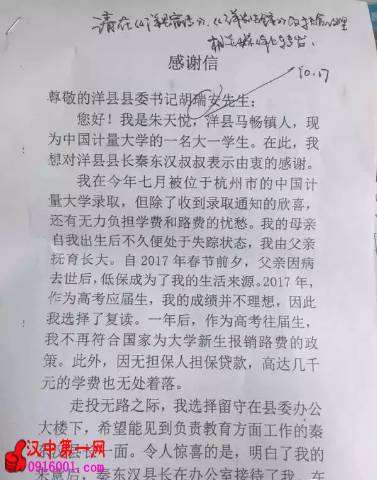 请在
感谢信
10.17
尊敬的洋县县委书记胡瑞安先生:
您好!我是朱天悦,洋县马畅镇人,现
为中国计量大学的一名大一学生。在此,我
想对洋县县长秦东汉叔叔表示由衷的感谢。
我在今年七月被位于杭州市的中国计
量大学录取,但除了收到录取通知的欣喜,
还有无力负担学费和路费的忧愁。我的母亲
自我出生后不久便处于失踪状态,我由父亲
抚育长大。自2017年春节前夕,父亲因病
去世后,低保成为了我的生活来源。2017年,
作为高考应届生,我的成绩并不理想,因此
我选择了复读。一年后,作为高考往届生,
我不再符合国家为大学新生报销路费的政
策。此外,因无担保人担保贷款,高达几千
元的学费也无处着落。
走投无路之际,我选择留守在县委办公
大楼下,希望能见到负责教育方面工作的秦
一面。令人惊喜的是,明白了我的
来意后,秦东汉县长在办公室接待了我。在
汉中第一网
0916001.com